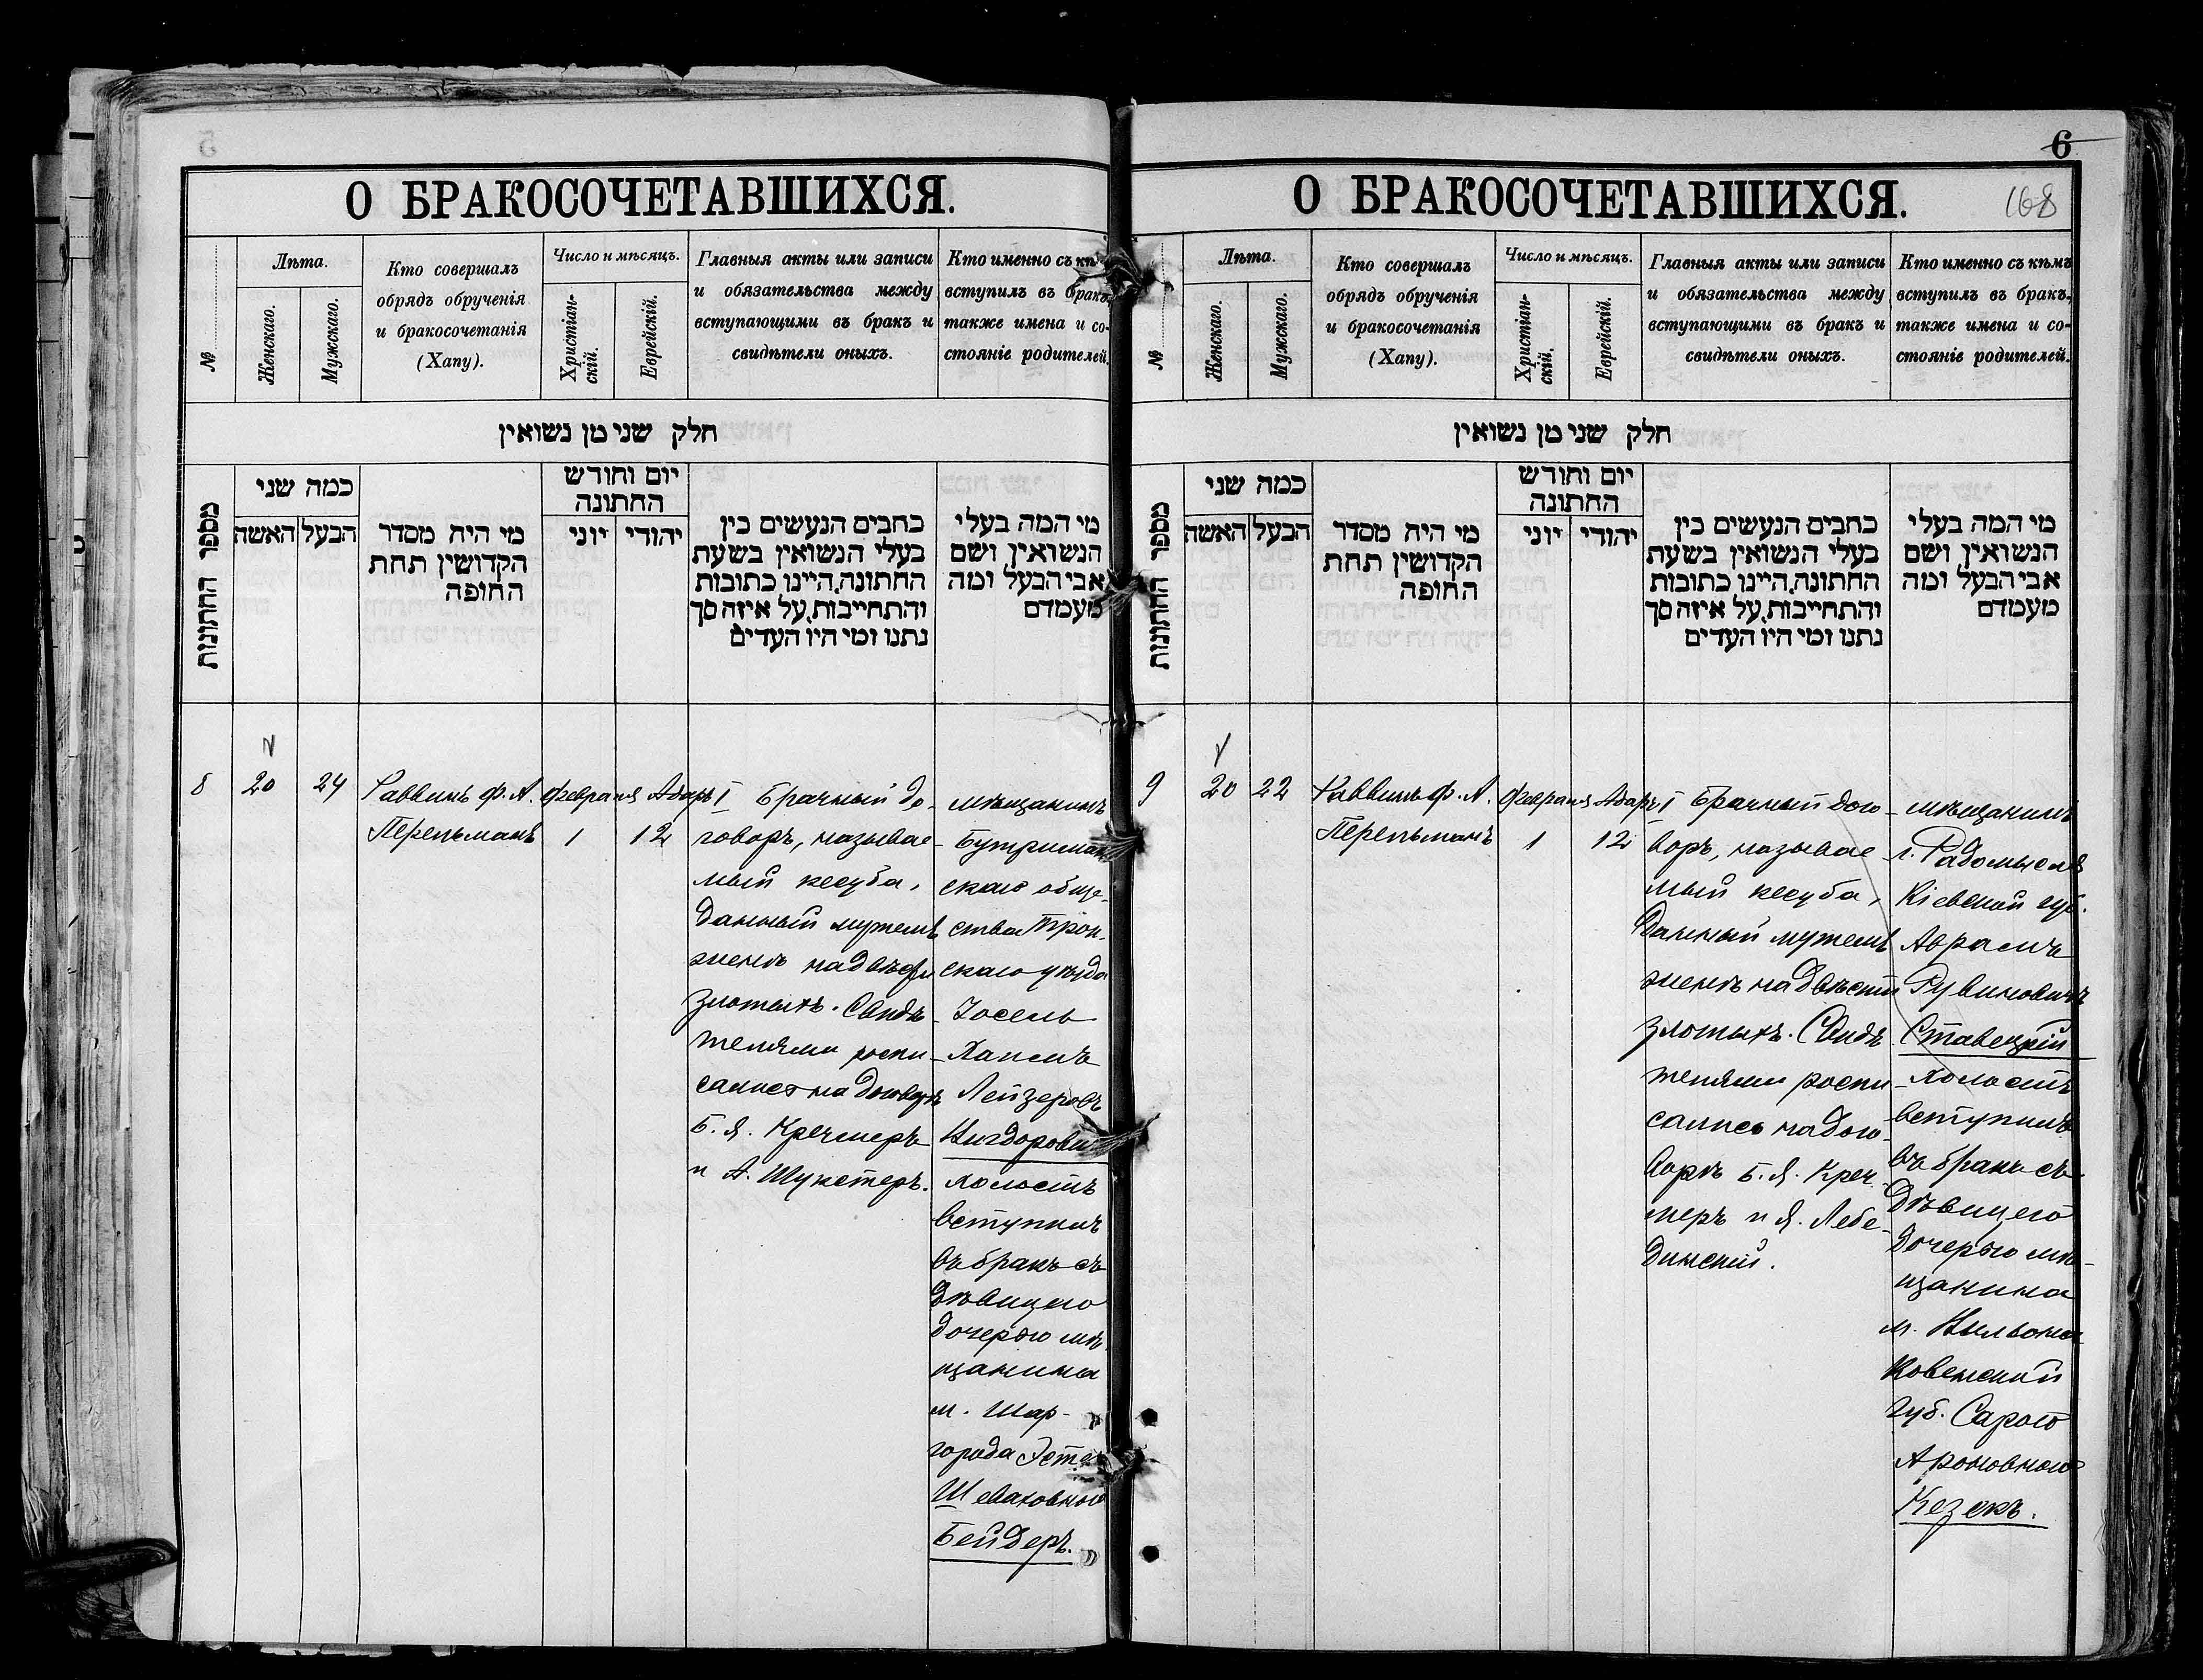 5
О БРАКОСОЧЕТАВШИХСЯ.
№
Лѣта.
Женскаго.
Мужскаго.
Кто совершалъ
обрядъ обрученія
и бракосочетанія
(Хапу).
Число и мѣсяцъ.
Христіан-
скій.
Еврейскій.
Главныя акты или записи
и обязательства между
вступающими въ бракъ и
свидѣтели оныхъ.
Кто именно съ кѣ
вступилъ въ бракъ,
также имена и со-
стояніе родителей.
חלק שני מן נשואין
מספר החתונות
כמה שני
האשה
הבעל
מי היה מסדר
הקדושין תחת
החופה
יום וחודש
החתונה
יוני
יהודי
כתבים הנעשים בין
בעלי הנשואין בשעת
החתונה, היינו כתובות
והתחייבות, על איזה סך
נתנו ומי היו העדים
מי המה בעלי
הנשואין ושם
אבי הבעל ומה
מעמדם
8
20
24
Раввинъ Ф. А.
Перельманъ
Февраля
1
Адаръ I
12
Брачный до-
говоръ, называе-
мый кесуба,
данный мужемъ
женѣ на двѣсти
злотыхъ. Свидѣ-
телями роспи-
сались на договорѣ
Б. Я. Кречмеръ
и А. Шустеръ.
мѣщанинъ
Бутриман
скаго обще-
ства Трок-
скаго уѣзда
Іосель
Хаимъ
Лейзеровъ
холостъ
вступилъ
въ бракъ съ
дѣвицею
дочерью мѣ
щанина
м. Шар-
города Эстер
Шеваховною
Бейдеръ.
6
168
О БРАКОСОЧЕТАВШИХСЯ.
№
Лѣта.
Женскаго.
Мужскаго.
Кто совершалъ
обрядъ обрученія
и бракосочетанія
(Хапу).
Число и мѣсяцъ.
Христіан-
скій.
Еврейскій.
Главныя акты или записи
и обязательства между
вступающими въ бракъ и
свидѣтели оныхъ.
Кто именно съ кѣмъ
вступилъ въ бракъ,
также имена и со-
стояніе родителей.
חלק שני מן נשואין
מספר החתונות
כמה שני
האשה
הבעל
מי היה מסדר
הקדושין תחת
החופה
יום וחודש
החתונה
יוני
יהודי
כתבים הנעשים בין
בעלי הנשואין בשעת
החתונה, היינו כתובות
והתחייבות, על איזה סך
נתנו ומי היו העדים
מי המה בעלי
הנשואין ושם
אבי הבעל ומה
מעמדם
9
20
22
Раввинъ Ф. А.
Перельманъ
Февраля
1
Адаръ I
12
Брачный дого-
воръ, называе
мый кесуба,
данный мужемъ
женѣ на двѣсти
злотыхъ. Свидѣ
телями роспи
сались на дого-
ворѣ Б. Я. Креч-
меръ и Я. Лебе-
динскій.
мѣщанинъ
г. Радомысля
Кіевской губ.
Аврамъ
Рувиновичъ
Ставецкій
холостъ
вступилъ
въ бракъ съ
дѣвицею
дочерью мѣ-
щанина
Ковенской
губ. Сарою
Ароновною
Кезекъ.